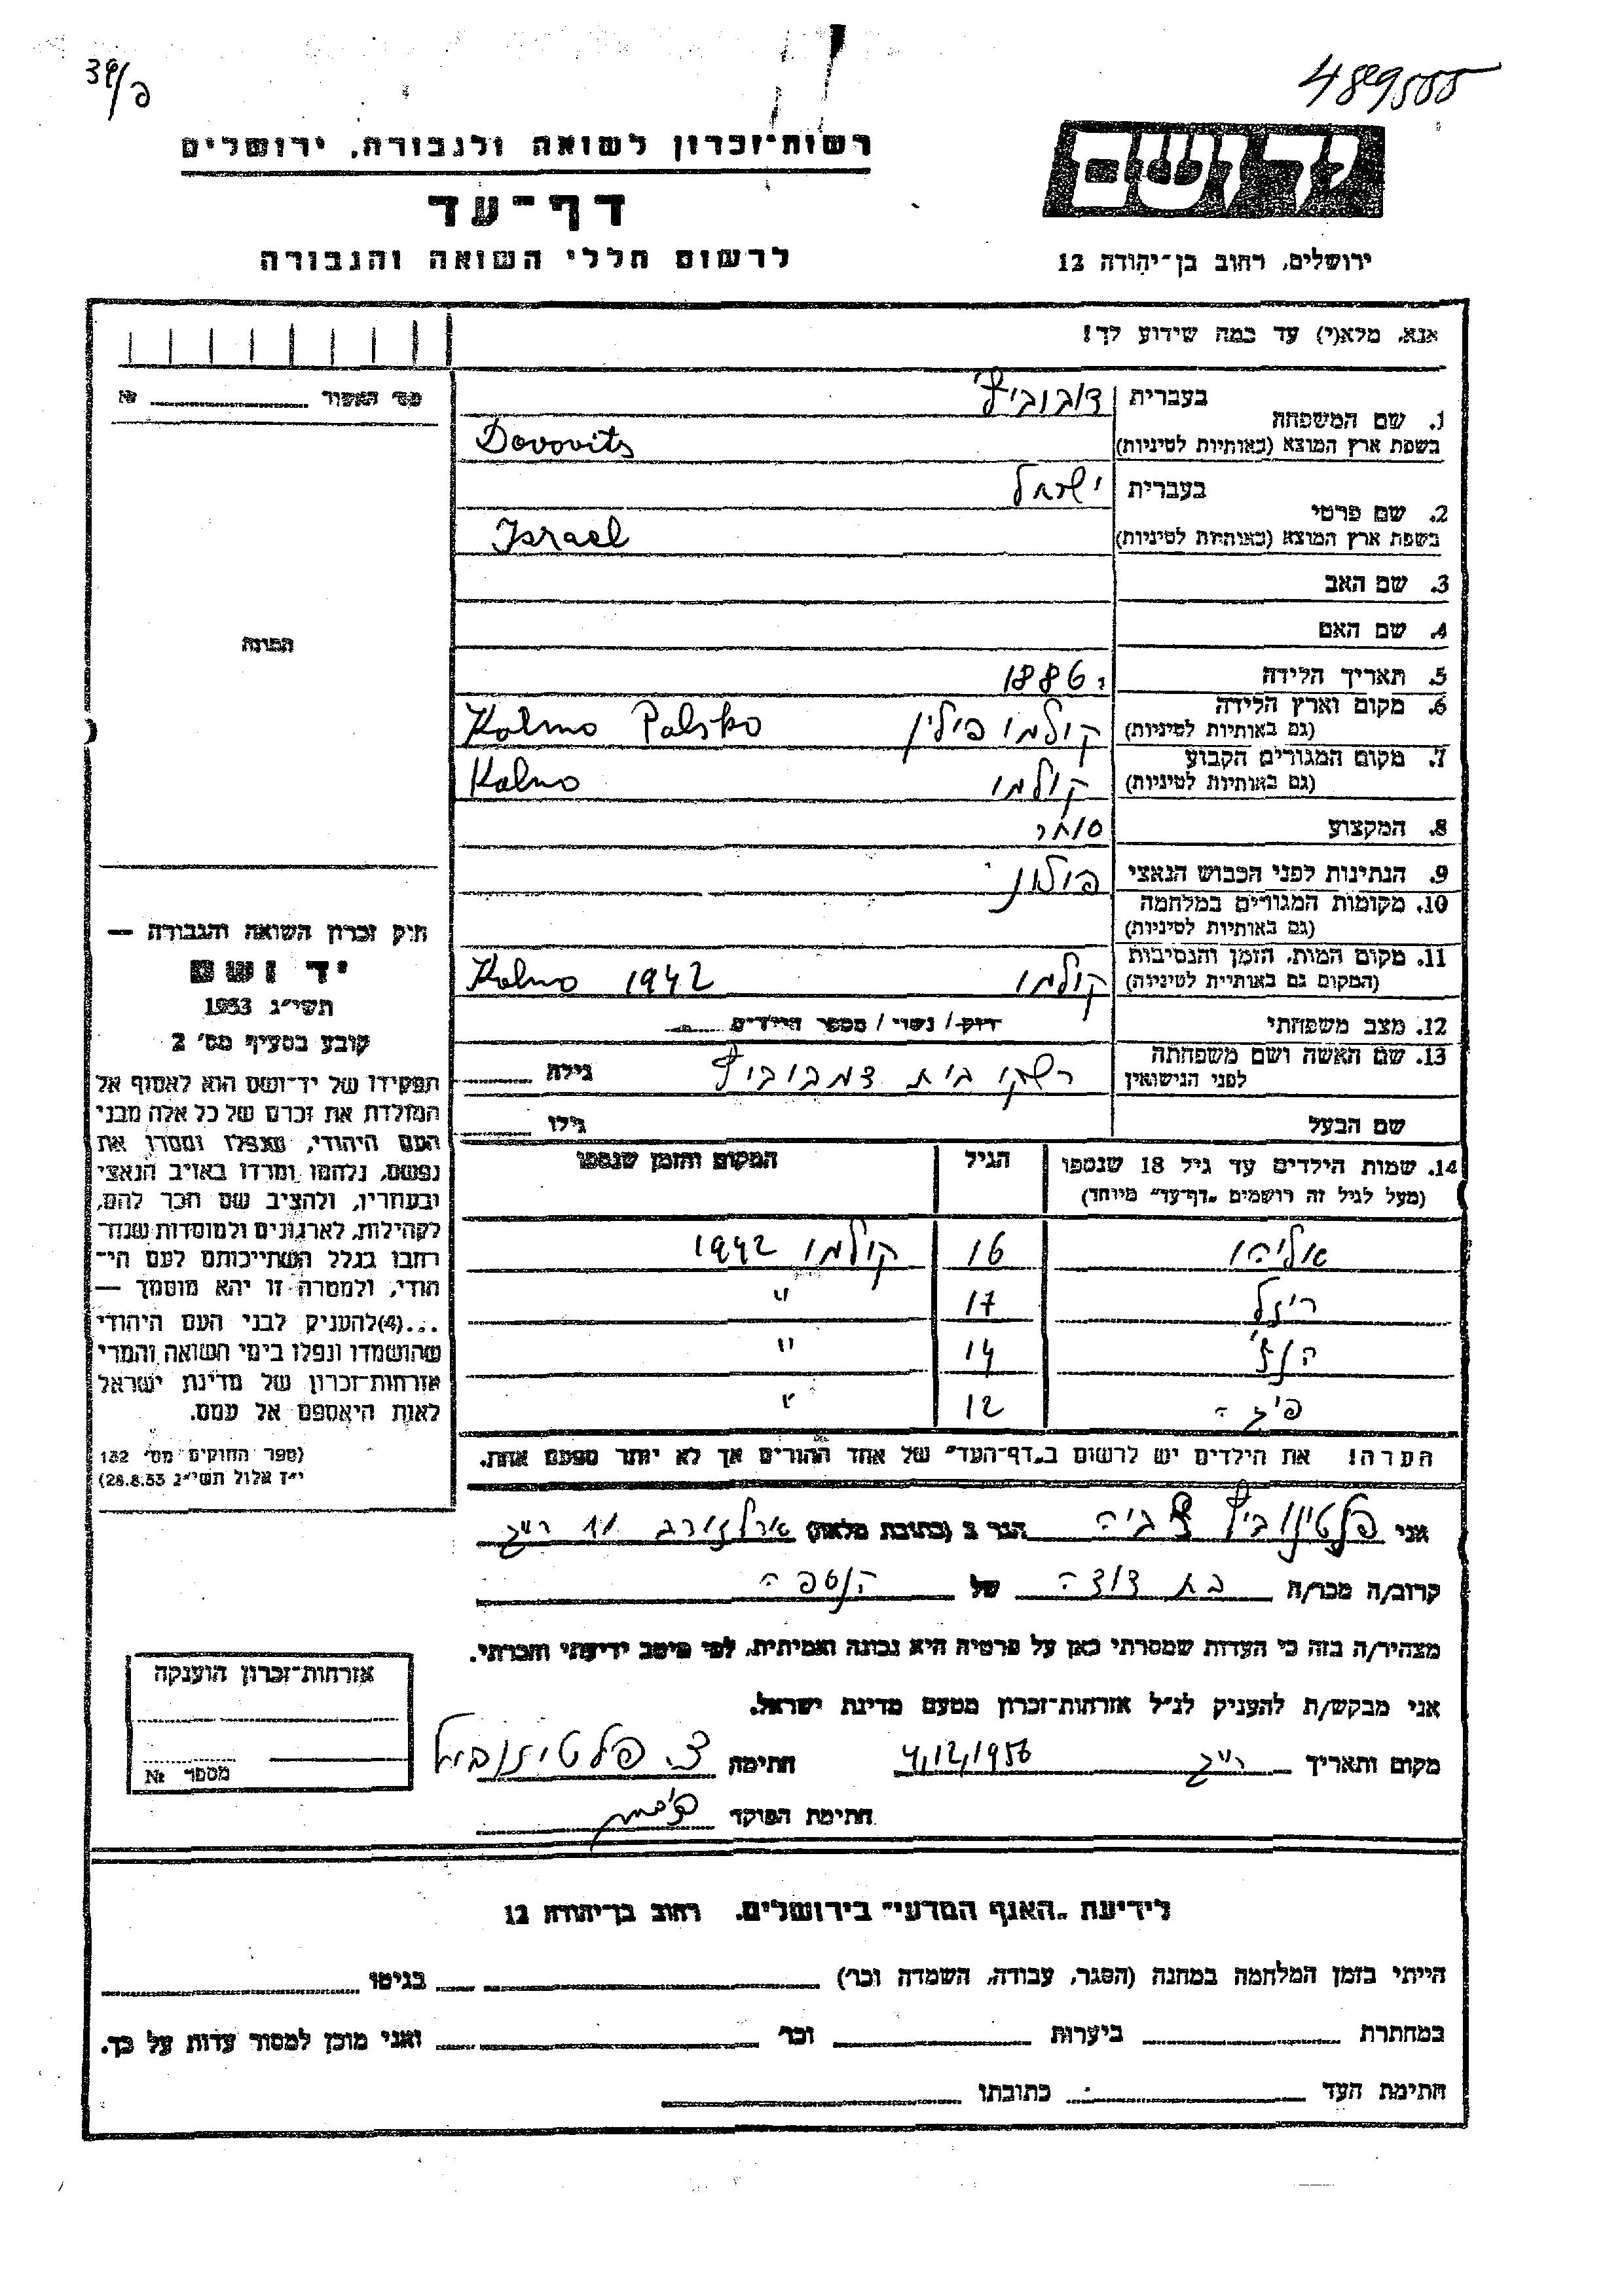 39/ס
489555
רשות-זכרון לשואה ולגבורה, ירושלים
דף-עד
לרשום חללי השואה והגבורה
ידושם
ירושלים, רחוב בן-יהודה 12
אנא, מלא(י) עד כמה שידוע לך!
מס׳ האשור № 
1. שם המשפחה
בעברית דובוביץ'
בשפת ארץ המוצא (באותיות לטיניות) Dovovits
2. שם פרטי
בעברית ישראל
בשפת ארץ המוצא (באותיות לטיניות) Israel
3. שם האב
4. שם האם
5. תאריך הלידה 1886
6. מקום וארץ הלידה
(גם באותיות לטיניות) קולמו פולין Kolmo Polsko
7. מקום המגורים הקבוע
(גם באותיות לטיניות) קולמו Kolmo
8. המקצוע סוחר
9. הנתינות לפני הכבוש הנאצי פולון
10. מקומות המגורים במלחמה
(גם באותיות לטיניות)
11. מקום המות, הזמן והנסיבות
(המקום גם באותיות לטיניות) קולמו Kolmo 1942
12. מצב משפחתי רווק / נשוי / מספר הילדים
13. שם האשה ושם משפחתה
לפני הנישואין רשקו בית גילה
שם הבעל גילו
14. שמות הילדים עד גיל 18 שנספו הגיל המקום והזמן שנספו
(מעל לגיל זה רושמים „דף-עד" מיוחד)
אליהו 16 קולמו 1942
ריזל 17 "
14 "
12 "
הערה! את הילדים יש לרשום ב„דף-העד" של אחד ההורים אך לא יותר מפעם אחת.
התמונה
חוק זכרון השואה והגבורה —
יד ושם
תשי״ג 1953
קובע בסעיף מס׳ 2
תפקידו של יד-ושם הוא לאסוף אל
המולדת את זכרם של כל אלה מבני
העם היהודי, שנפלו ומסרו את
נפשם, נלחמו ומרדו באויב הנאצי
ובעוזריו, ולהציב שם וזכר להם,
לקהילות, לארגונים ולמוסדות שנח-
רבו בגלל השתייכותם לעם הי-
הודי, ולמטרה זו יהא מוסמך —
...(4)להעניק לבני העם היהודי
שהושמדו ונפלו בימי השואה והמרי
אזרחות-זכרון של מדינת ישראל
לאות היאספם אל עמם.
(ספר החוקים מס׳ 132
י״ז אלול תשי״ג 28.8.53)
אני פלטינוביץ צביה הגר ב (כתובת מלאה) ארלוזורוב ר״ג
קרוב/ה מכר/ה בת דודה של הנספה
מצהיר/ה בזה כי העדות שמסרתי כאן על פרטיה היא נכונה ואמיתית, לפי מיטב ידיעתי והכרתי.
אני מבקש/ת להעניק לנ״ל אזרחות-זכרון מטעם מדינת ישראל.
מקום ותאריך ר״ג 4,12,1956 חתימה צ. פלטינוביץ
חתימת הפוקד
אזרחות-זכרון הוענקה
מספר №
לידיעת „האגף המדעי" בירושלים, רחוב בן-יהודה 12
הייתי בזמן המלחמה במחנה (הסגר, עבודה, השמדה וכר׳) בגיטו
במחתרת ביערות וכר׳ ואני מוכן למסור עדות על כך.
חתימת העד כתובתו